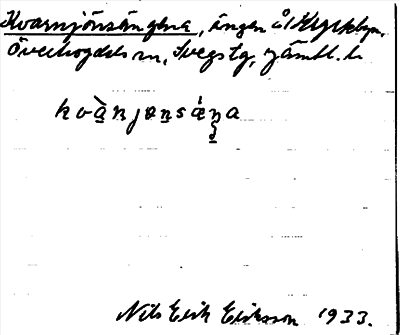 Kvarnjönsängena, ängen å Kyrkbyn,
Överhogdals sn, Svegs tg, Jämtl. l.
kvànjønsǽŋa
Nils Erik Eriksson 1933.